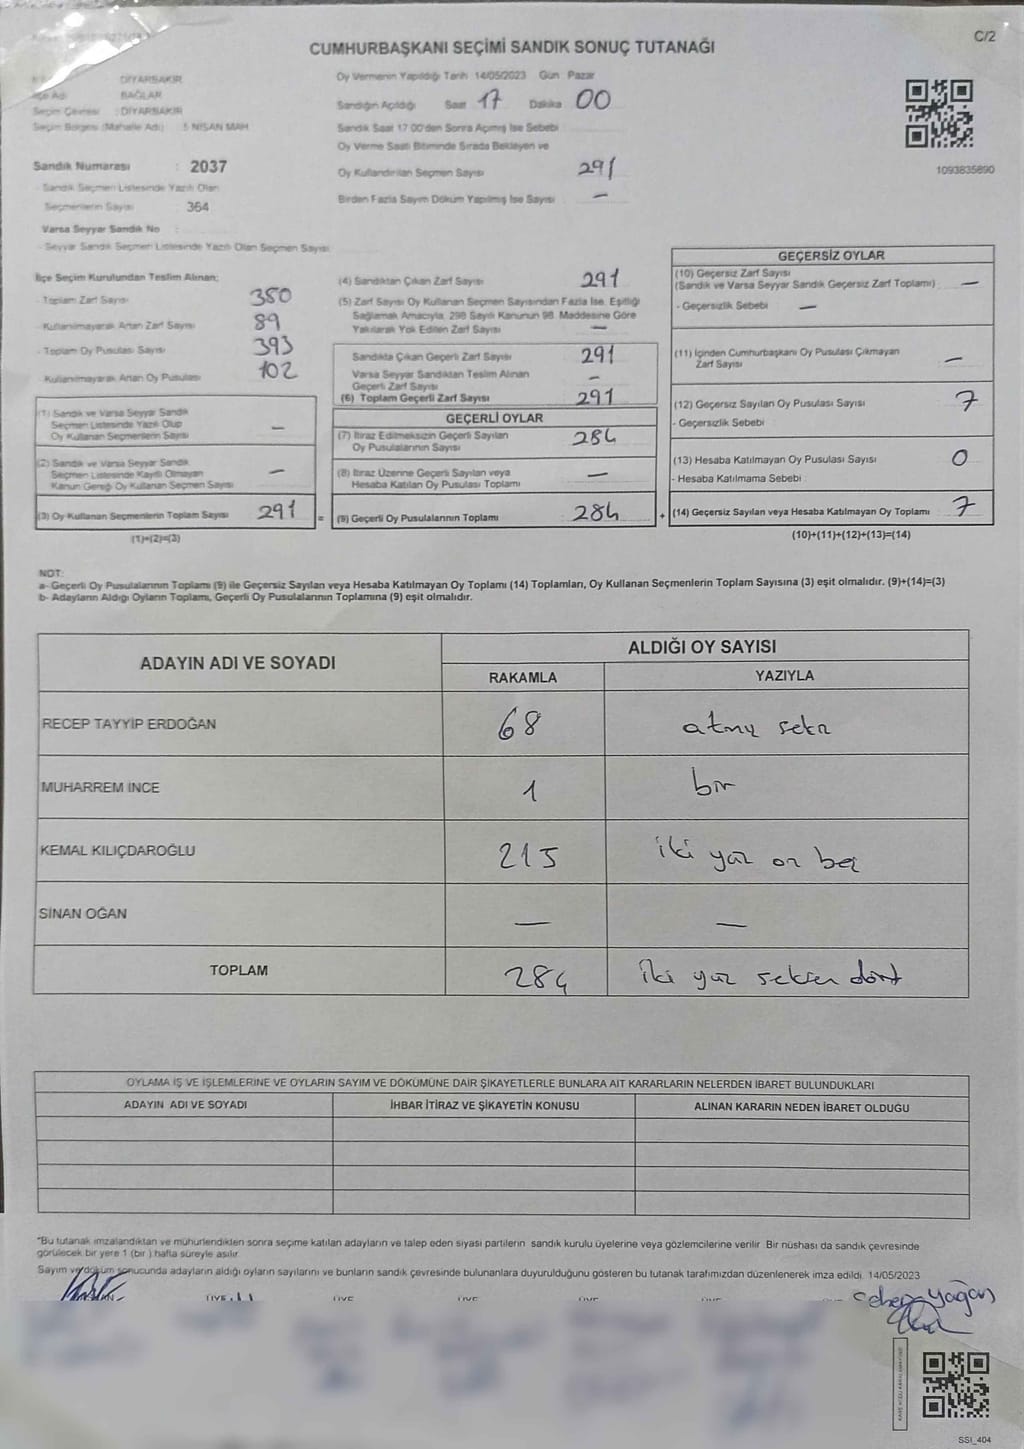 C/2
CUMHURBAŞKANI SEÇİMİ SANDIK SONUÇ TUTANAĞI
DİYARBAKIR
İlçe Adı BAĞLAR
Seçim Çevresi : DİYARBAKIR
Seçim Bölgesi (Mahalle Adı) : 5 NİSAN MAH.
Sandık Numarası : 2037
- Sandık Seçmen Listesinde Yazılı Olan
Seçmenlerin Sayısı 364
Varsa Seyyar Sandık No :
- Seyyar Sandık Seçmen Listesinde Yazılı Olan Seçmen Sayısı
Oy Vermenin Yapıldığı Tarih 14/05/2023 Gün Pazar
Sandığın Açıldığı Saat 17 Dakika 00
Sandık Saat 17 00'den Sonra Açılmış İse Sebebi
Oy Verme Saati Bitiminde Sırada Bekleyen ve
Oy Kullandırılan Seçmen Sayısı 291
Birden Fazla Sayım Döküm Yapılmış İse Sayısı —
1093835890
İlçe Seçim Kurulundan Teslim Alınan;
- Toplam Zarf Sayısı 380
- Kullanılmayarak Artan Zarf Sayısı 89
- Toplam Oy Pusulası Sayısı 393
- Kullanılmayarak Artan Oy Pusulası 102
(1) Sandık ve Varsa Seyyar Sandık
Seçmen Listesinde Yazılı Olup
Oy Kullanan Seçmenlerin Sayısı —
(2) Sandık ve Varsa Seyyar Sandık
Seçmen Listesinde Kayıtlı Olmayan
Kanun Gereği Oy Kullanan Seçmen Sayısı —
(3) Oy Kullanan Seçmenlerin Toplam Sayısı 291 =
(1)+(2)=(3)
(4) Sandıktan Çıkan Zarf Sayısı 291
(5) Zarf Sayısı Oy Kullanan Seçmen Sayısından Fazla İse, Eşitliği
Sağlamak Amacıyla, 298 Sayılı Kanunun 98. Maddesine Göre
Yakılarak Yok Edilen Zarf Sayısı —
Sandıkta Çıkan Geçerli Zarf Sayısı 291
Varsa Seyyar Sandıktan Teslim Alınan
Geçerli Zarf Sayısı —
(6) Toplam Geçerli Zarf Sayısı 291
GEÇERLİ OYLAR
(7) İtiraz Edilmeksizin Geçerli Sayılan
Oy Pusulalarının Sayısı 284
(8) İtiraz Üzerine Geçerli Sayılan veya
Hesaba Katılan Oy Pusulası Toplamı —
(9) Geçerli Oy Pusulalarının Toplamı 284 +
GEÇERSİZ OYLAR
(10) Geçersiz Zarf Sayısı
(Sandık ve Varsa Seyyar Sandık Geçersiz Zarf Toplamı) —
- Geçersizlik Sebebi —
(11) İçinden Cumhurbaşkanı Oy Pusulası Çıkmayan
Zarf Sayısı —
(12) Geçersiz Sayılan Oy Pusulası Sayısı 7
- Geçersizlik Sebebi
(13) Hesaba Katılmayan Oy Pusulası Sayısı 0
- Hesaba Katılmama Sebebi :
(14) Geçersiz Sayılan veya Hesaba Katılmayan Oy Toplamı 7
(10)+(11)+(12)+(13)=(14)
NOT:
a- Geçerli Oy Pusulalarının Toplamı (9) ile Geçersiz Sayılan veya Hesaba Katılmayan Oy Toplamı (14) Toplamları, Oy Kullanan Seçmenlerin Toplam Sayısına (3) eşit olmalıdır. (9)+(14)=(3)
b- Adayların Aldığı Oyların Toplamı, Geçerli Oy Pusulalarının Toplamına (9) eşit olmalıdır.
ADAYIN ADI VE SOYADI ALDIĞI OY SAYISI
RAKAMLA YAZIYLA
RECEP TAYYİP ERDOĞAN 68 atmış sekiz
MUHARREM İNCE 1 bir
KEMAL KILIÇDAROĞLU 215 iki yüz on beş
SİNAN OĞAN — —
TOPLAM 284 iki yüz seksen dört
OYLAMA İŞ VE İŞLEMLERİNE VE OYLARIN SAYIM VE DÖKÜMÜNE DAİR ŞİKAYETLERLE BUNLARA AİT KARARLARIN NELERDEN İBARET BULUNDUKLARI
ADAYIN ADI VE SOYADI İHBAR İTİRAZ VE ŞİKAYETİN KONUSU ALINAN KARARIN NEDEN İBARET OLDUĞU
"Bu tutanak imzalandıktan ve mühürlendikten sonra seçime katılan adayların ve talep eden siyasi partilerin sandık kurulu üyelerine veya gözlemcilerine verilir. Bir nüshası da sandık çevresinde
görülecek bir yere 1 (bir ) hafta süreyle asılır.
Sayım ve döküm sonucunda adayların aldığı oyların sayılarını ve bunların sandık çevresinde bulunanlara duyurulduğunu gösteren bu tutanak tarafımızdan düzenlenerek imza edildi. 14/05/2023
ÜYE ÜYE ÜYE ÜYE ÜYE
yağan
SSI_404